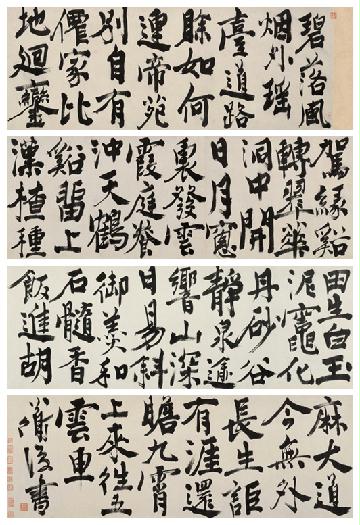 碧落風
烟外瑤
臺道路
賒如何
連帝苑
別自有
僊家比
地迴鑾
駕緣谿
轉翠華
洞中開
日月窻
裏發雲
霞庭養
沖天鶴
谿畱上
漢楂種
田生白玉
泥竈化
丹砂谷
靜泉逾
響山深
日易斜
御羹和
石髓香
飯進胡
麻大道
今無外
長生詎
有涯還
瞻九霄
上來往五
雲車
書